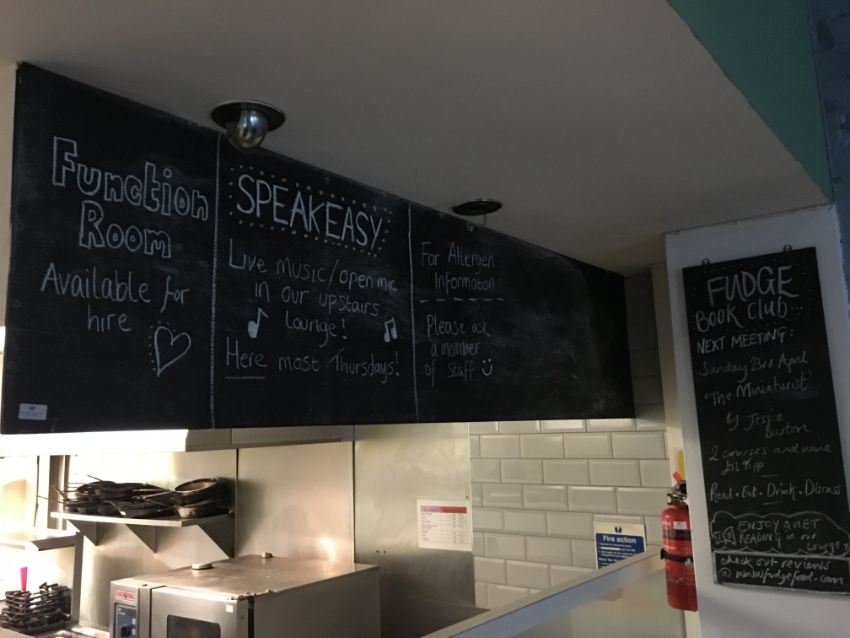 Function
Room
Available for
hire
SPEAKEASY
Live music/open mic
in our upstairs
lounge!
Here most Thursdays!
For Allergen
Information
Please ask
a member
of staff
FUDGE
Book Club...
NEXT MEETING:
Sunday 23rd April
'The Miniaturist'
by Jessie
Burton
2 courses and wine
£15 pp
Read • Eat • Drink • Discuss
ENJOY QUIET
READING in our
Lounge
check out reviews
@ www.fudgefood.com
Fire action